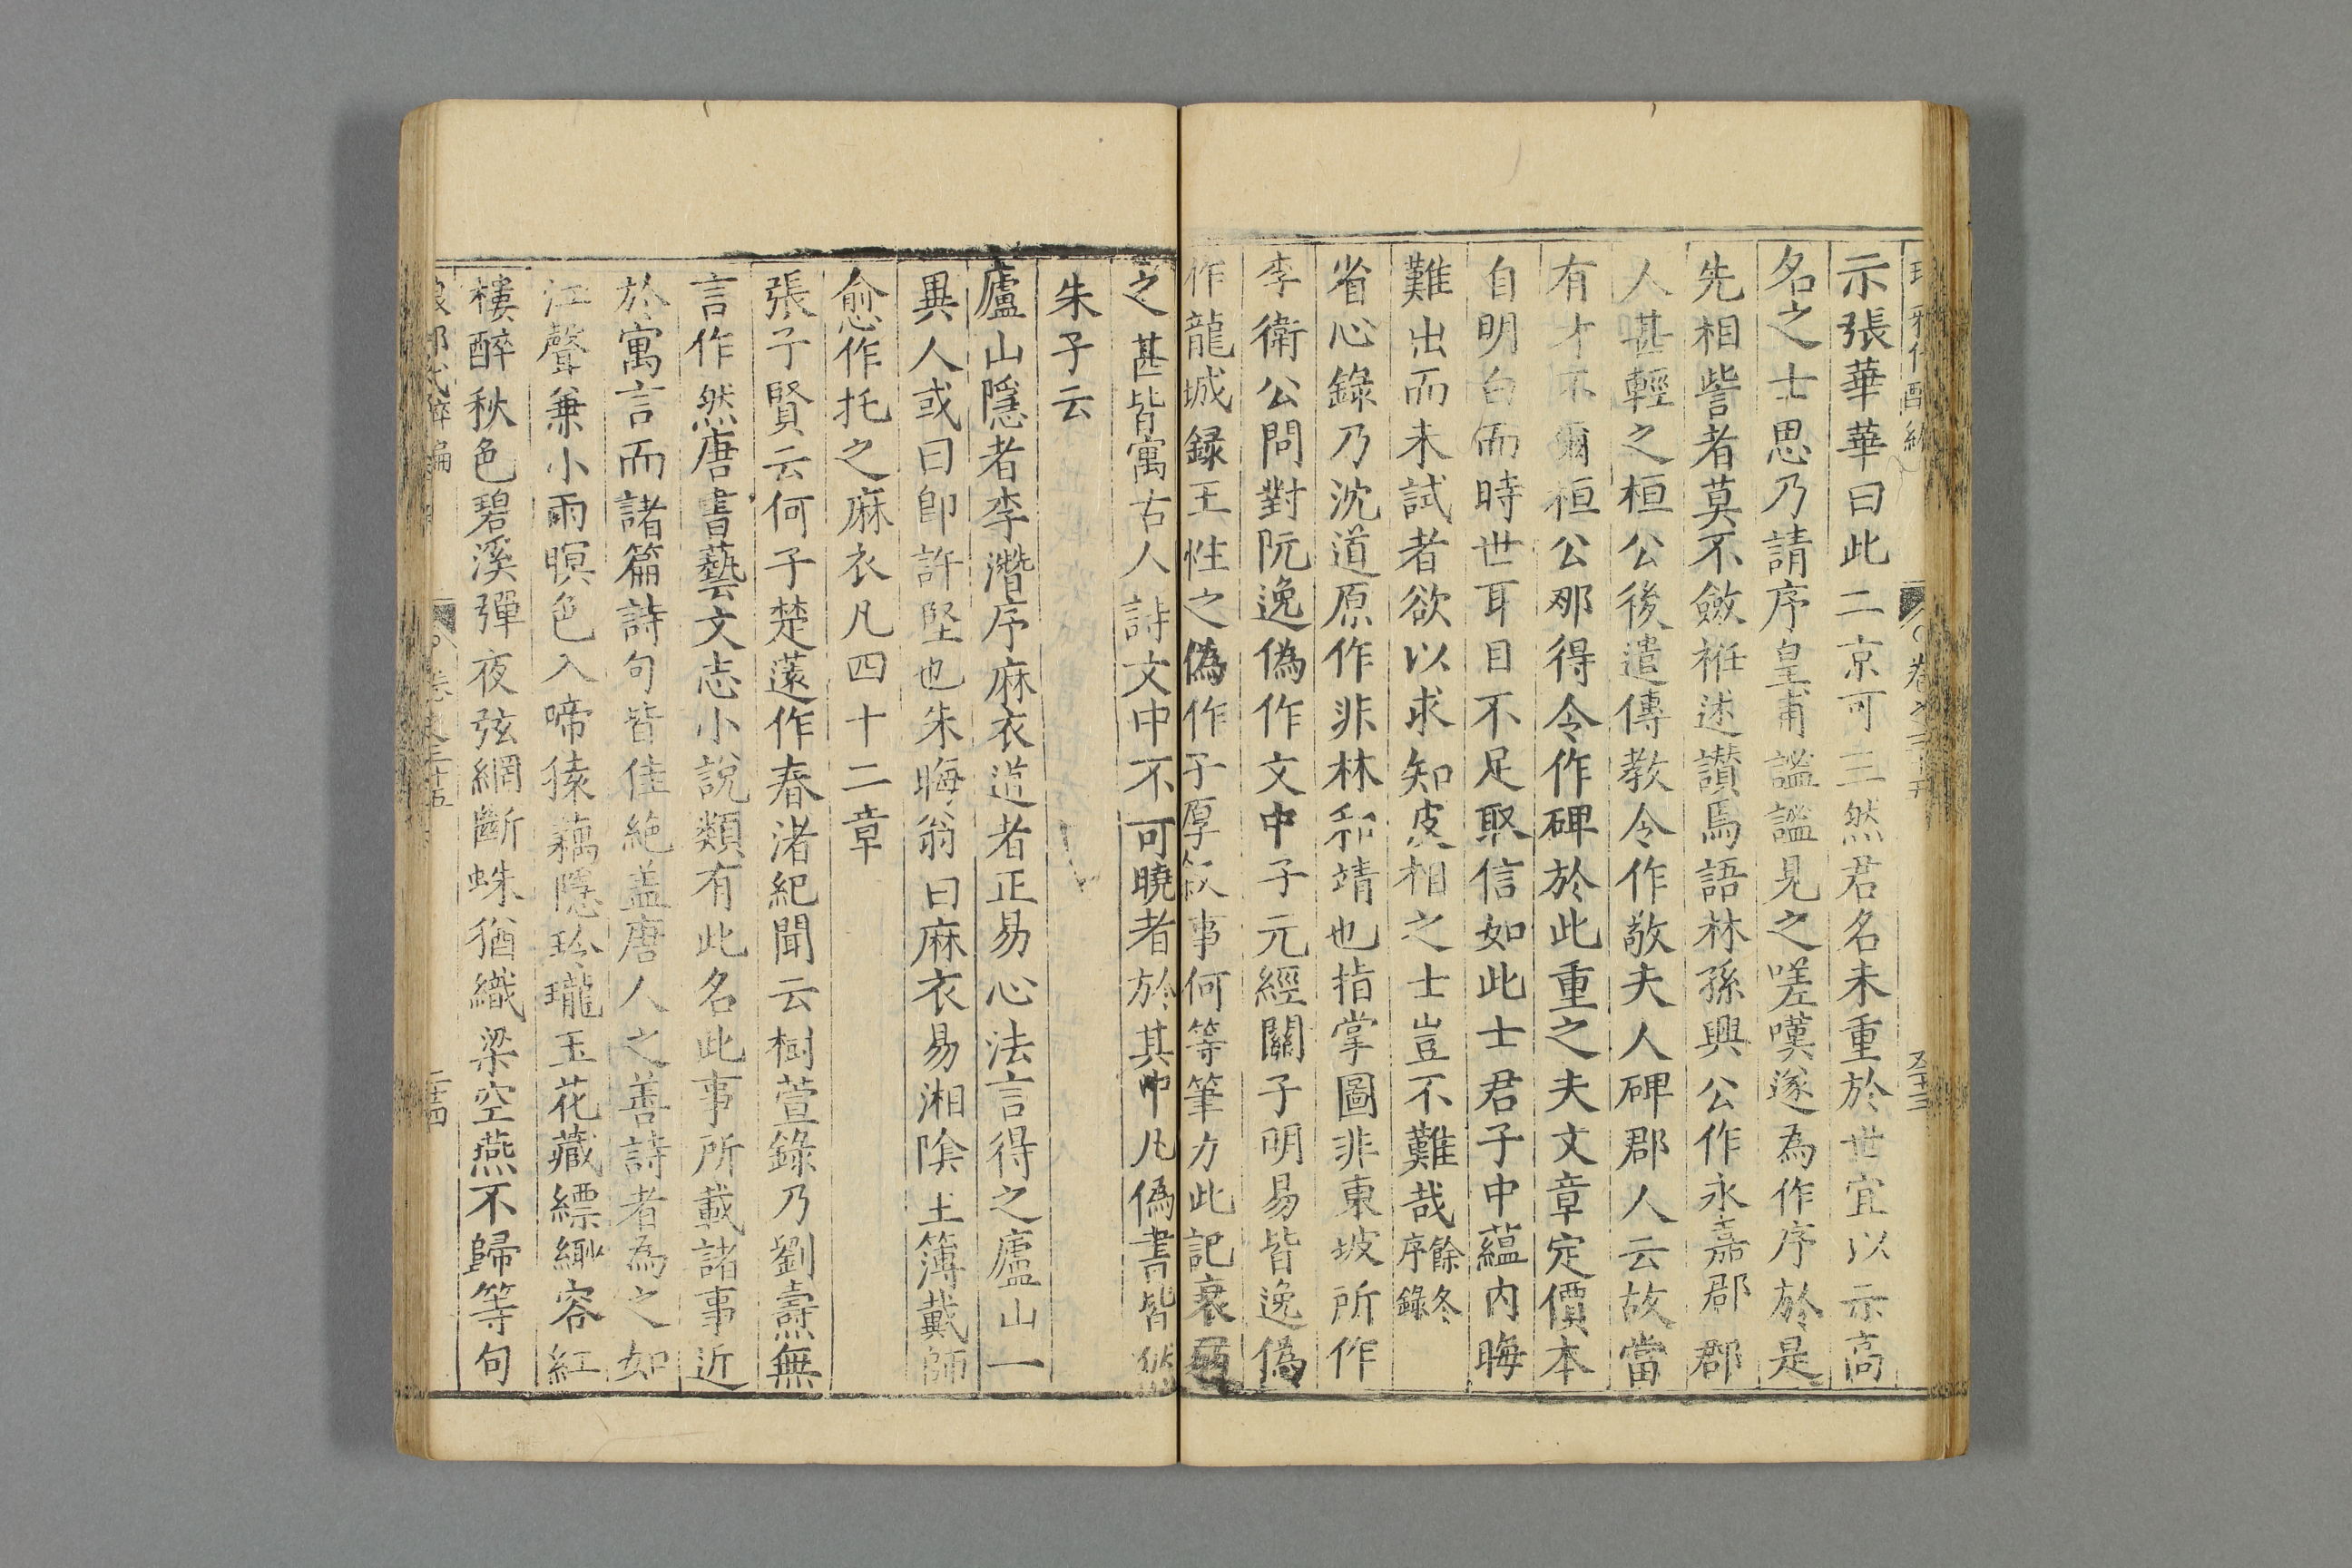 示張華華曰此二京可三然君名未重於世宜以示高
名之士思乃請序皇甫謐謐見之嗟嘆遂為作序於是
先相訾者莫不斂袵述讃焉語林孫興公作永嘉郡郡
人甚輕之桓公後遣傳教令作敬夫人碑郡人云故當
有才不爾桓公那得令作碑於此重之夫文章定價本
自明白而時世耳目不足取信如此士君子中蘊内晦
難出而未試者欲以求知皮相之士豈不難哉餘冬序錄
省心錄乃沈道原作非林和靖也指掌圖非東坡所作
李衛公問對阮逸偽作文中子元經關子明易皆逸偽
作龍城録王性之偽作子厚叙事何等筆力此記衰
之甚皆寓古人詩文中不可曉者於其中凡偽書皆然
朱子云
廬山隱者李潛序麻衣道者正易心法言得之廬山一
異人或曰卽許堅也朱晦翁曰麻衣易湘陰主簿戴師
愈作托之麻衣凡四十二章
張子賢云何子楚薳作春渚紀聞云樹萱錄乃劉燾無
言作然唐書藝文志小說類有此名此事所載諸事近
於寓言而諸篇詩句皆佳絶盖唐人之善詩者為之如
江聲兼小雨暝色入啼猿藕隱玲瓏玉花藏縹緲容紅
樓醉秋色碧溪彈夜弦網斷蛛猶織梁空燕不歸等句